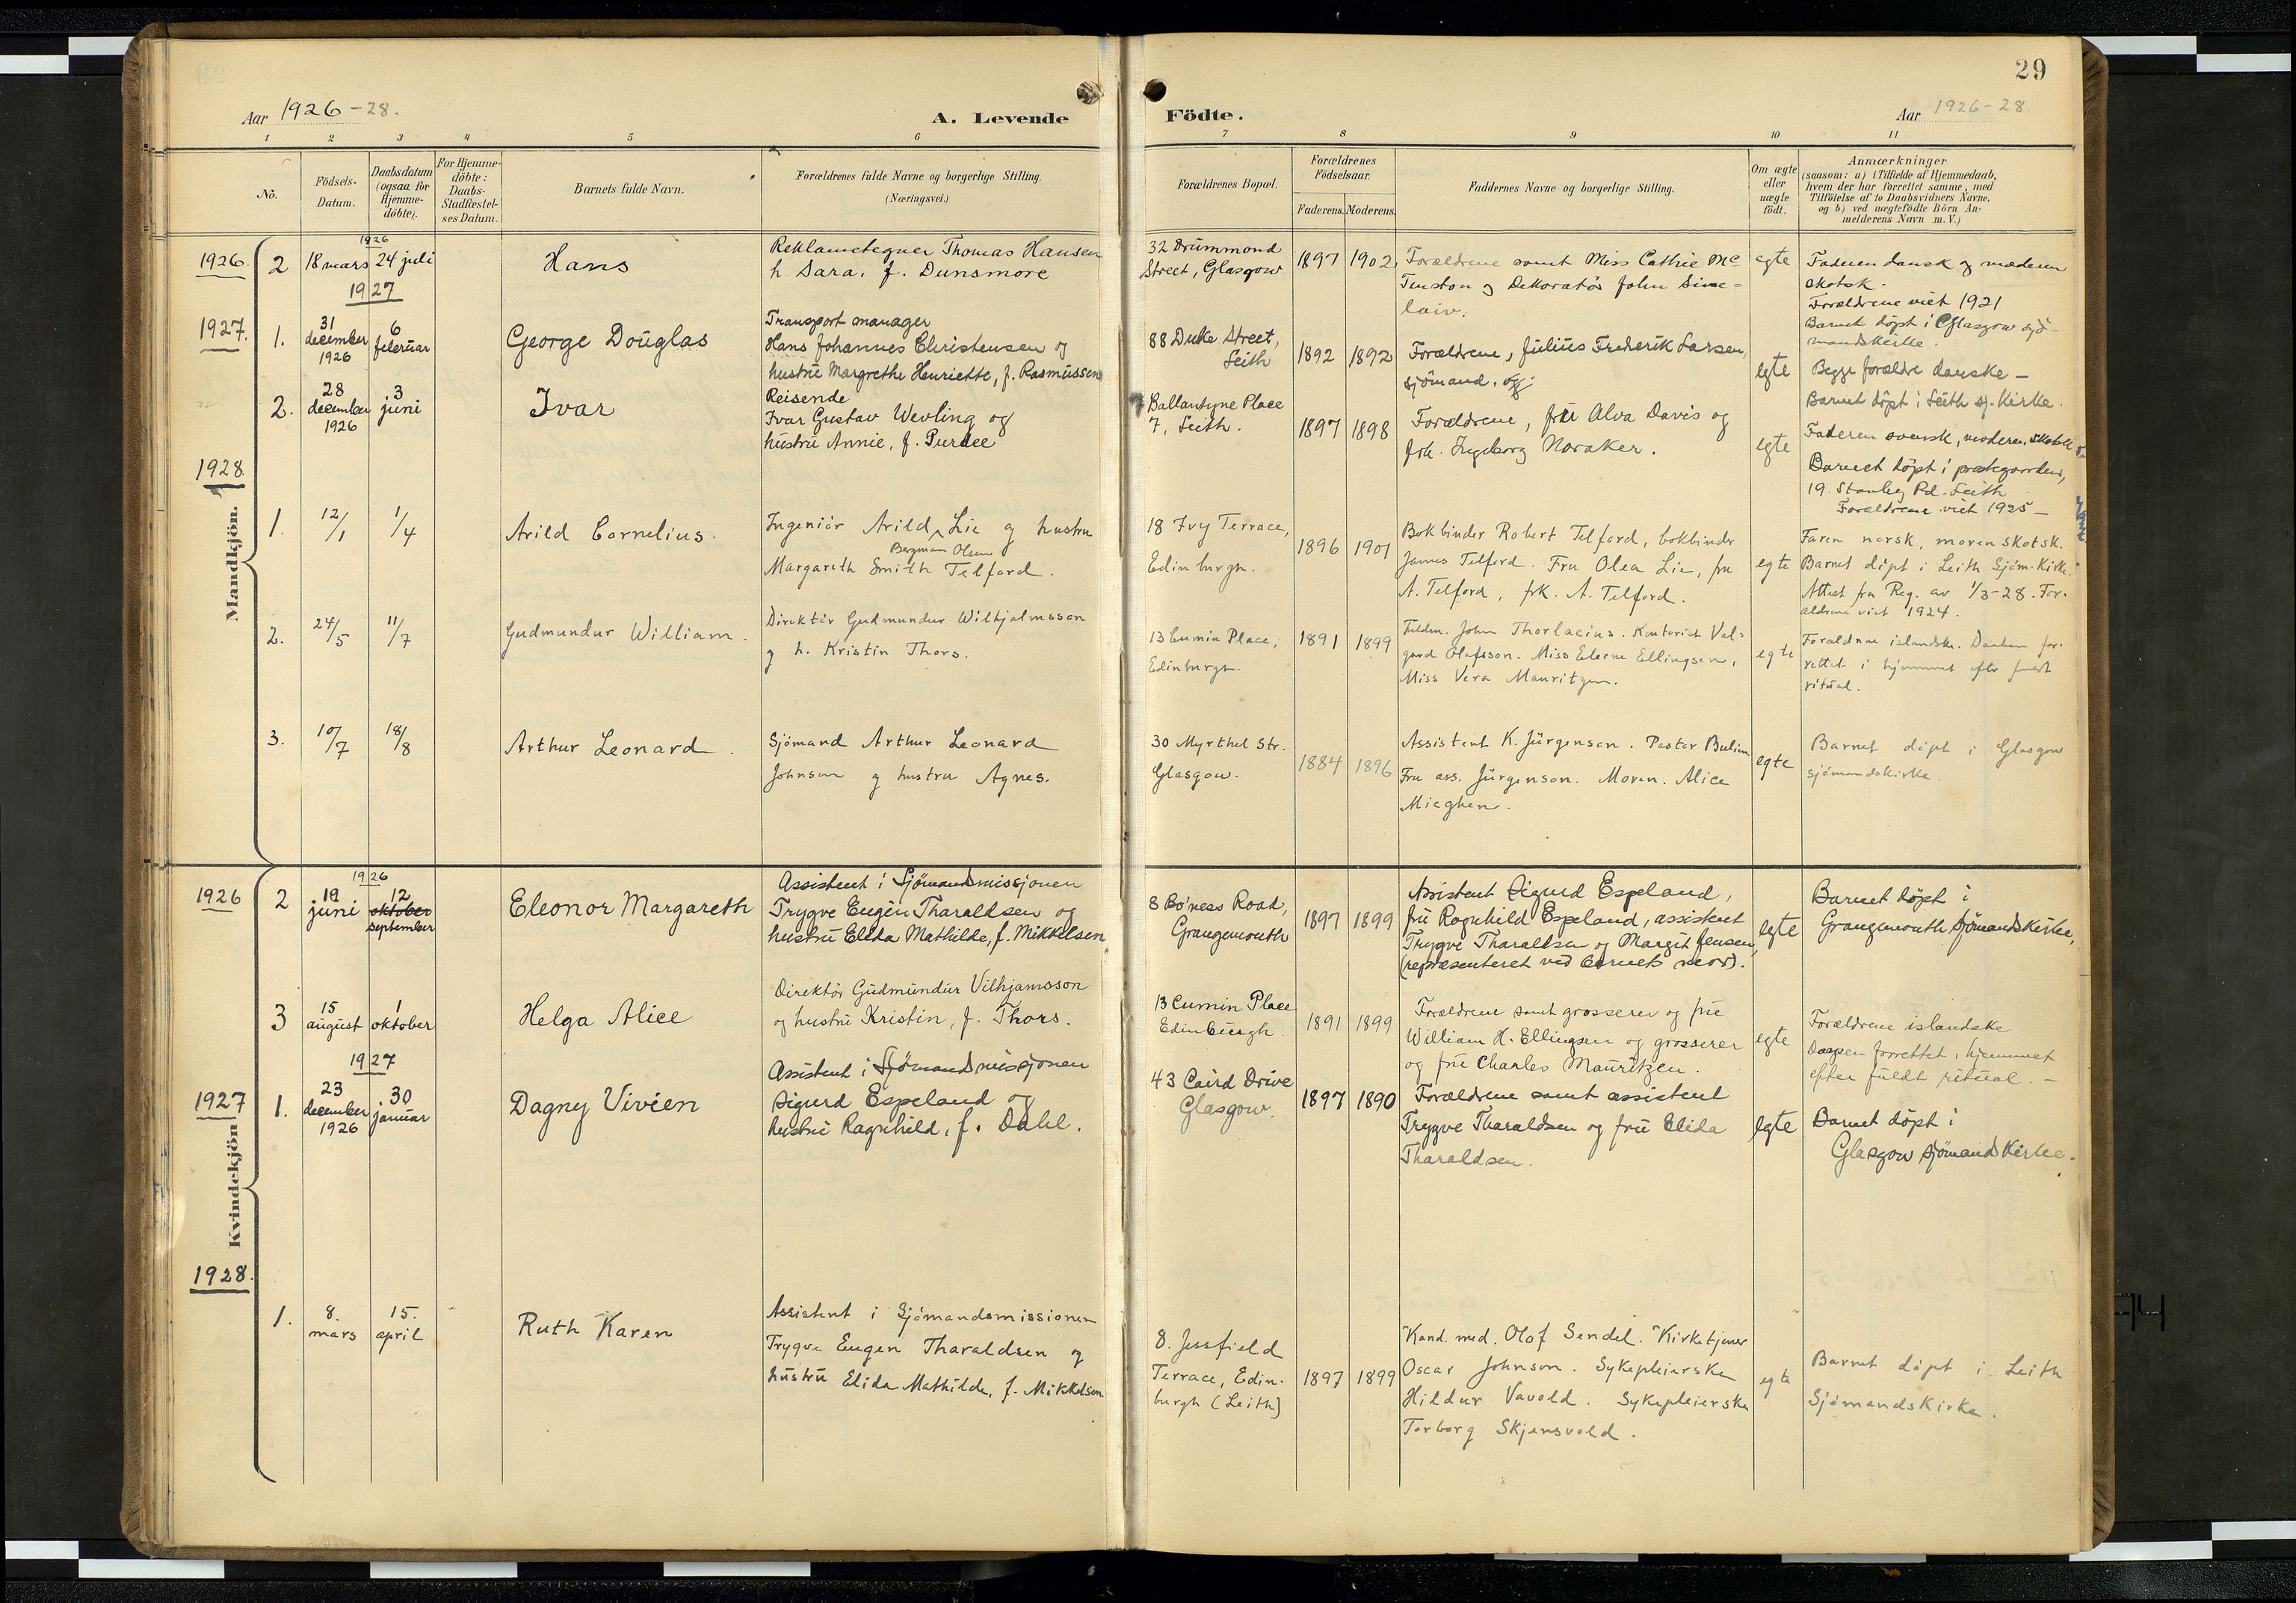 29
Aar 1926-28.
A. Levende
Födte.
Aar 1926-28.
1 2 3 4 5 6 7 8 9 10 11
No.
Födsels-
Datum.
Daabsdatum
(ogsaa for
Hjemme-
döbte).
For Hjemme-
döbte:
Daabs-
Stadfæstel-
ses Datum.
Barnets fulde Navn.
Forældrenes fulde Navne og borgerlige Stilling.
(Næringsvei.)
Forældrenes Bopæl.
Forældrenes
Födselsaar.
Faderens. Moderens.
Faddernes Navne og borgerlige Stilling.
Om ægte
eller
uægte
födt.
Anmærkninger
(saasom: a) i Tilfælde af Hjemmedaab,
hvem der har forrettet samme, med
Tilföielse af to Daabsvidners Navne,
og b) ved uægtefödte Börn An-
melderens Navn m. V.)
Mandkjön.
1926.
2
18 mars
1926
24 juli
Hans
Reklametegner Thomas Hansen
h. Sara, f. Dunsmore
32 Drummond
Street, Glasgow
1897 1902
Forældrene samt Miss Cathie Mc
og Dekoratör John
egte
Faderen dansk og moderen
skotsk.
Forældrene viet 1921
Barnet döpt i Glasgow sjö-
mandskirke.
1927
1927.
1.
31
december
1926
6
februar
George Douglas
Transport manager
Hans Johannes Christensen og
hustru Margrethe Henriette, f. Rasmussen
88 Duke Street,
Leith
1892 1892
Forældrene, Julius Frederik Larsen,
sjömand.
egte
Begge forældre danske –
Barnet döpt i Leith sj. Kirke.
2.
28
december
1926
3
juni
Ivar
Reisende
Ivar Gustav Wevling og
hustru Annie, f. Purdee
Ballantyne Place
7, Leith.
1897 1898
Forældrene, fru Alva Davis og
frk. Ingeborg Noraker.
egte
Faderen svensk, moderen skotsk
Barnet döpt i prestegaarden,
19. Stanley Rd. Leith
Forældrene viet 1925 –
1928.
1.
12/1
1/4
Arild Cornelius.
Ingeniör Arild Lie og hustru
Bergman Olsen
Margareth Smith Telford.
18 Ivy Terrace,
Edinburgh.
1896 1901
Bokbinder Robert Telford, bokbinder
James Telford. Fru Olea Lie, fru
A. Telford, frk. A. Telford.
egte
Faren norsk, moren skotsk.
Barnet döpt i Leith Sjöm. Kirke.
Attest fra Reg. av 1/3-28. For-
ældrene viet 1924.
2.
24/5
11/7
Gudmundur William.
Direktör Gudmundur Wilhjalmsson
og h. Kristin Thors.
13 Cumin Place,
Edinburgh.
1891 1899
John Thorlacius. Kontorist Val-
gard Olafsson. Miss Eleene Ellingsen,
Miss Vera Mauritzen.
egte
Forældrene islandske. Daaben for-
rettet i hjemmet efter fuldt
ritual.
3.
10/7
18/8
Arthur Leonard.
Sjömand Arthur Leonard
Johnson og hustru Agnes.
30 Myrthel Str.
Glasgow.
1884 1896
Assistent K. Jürgensen. Pastor
Fru ass. Jürgensen. Moren. Alice
Mieghen.
egte
Barnet döpt i Glasgow
sjömandskirke.
Kvindekjön
1926
2
1926
19
juni
12
oktober
september
Eleonor Margareth
Assistent i Sjömandsmissjonen
Trygve Eugén Tharaldsen og
hustru Elida Mathilde, f. Mikkelsen
8 Bo'ness Road,
Grangemouth
1897 1899
Assistent Sigurd Espeland,
fru Ragnhild Espeland, assistent
Trygve Tharaldsen og Margit Jensen,
(representeret ved barnets mor).
egte
Barnet döpt i
Grangemouth sjömandskirke,
3
15
august
1
oktober
Helga Alice
Direktör Gudmundur Vilhjamsson
og hustru Kristin, f. Thors.
13 Cumin Place
Edinburgh
1891 1899
Forældrene samt grosserer og frue
William H. Ellingsen og grosserer
og fru Charles Mauritzen.
egte
Forældrene islandske
Daapen forrettet i hjemmet
efter fuldt ritual. –
1927
1927
1.
23
december
1926
30
januar
Dagny Vivien
Assistent i Sjömandsmissjonen
Sigurd Espeland og
hustru Ragnhild, f. Dahl.
43 Caird Drive
Glasgow.
1897 1890
Forældrene samt assistent
Trygve Tharaldsen og fru Elida
Tharaldsen.
egte
Barnet döpt i
Glasgow sjömandskirke.
1928.
1.
8.
mars
15.
april
Ruth Karen
Assistent i Sjömandsmissionen
Trygve Eugen Tharaldsen og
hustru Elida Mathilde, f. Mikkelsen
8. Jessfield
Terrace, Edin-
burgh (Leith)
1897 1899
Kand. med. Olof Sendel. Kirketjener
Oscar Johnson. Sykepleierske
Hildur Vavold. Sykepleierske
Torborg Skjensvold.
egte
Barnet döpt i Leith
Sjömandskirke.